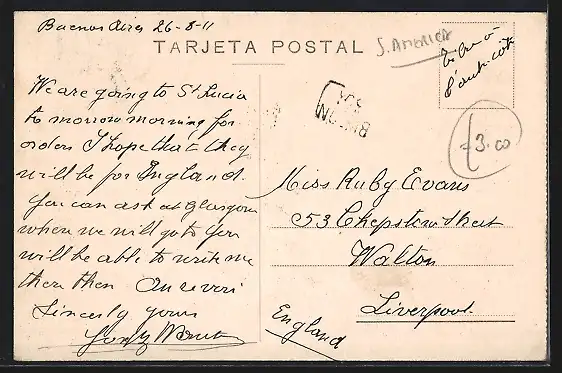 Buenos Aires 26-8-11
TARJETA POSTAL
S. AMERICA
We are going to St Lucia
to morrow morning for
orders I hope that they
will be for England.
You can ask at Glasgow
where we will go to you
will be able to write me
there then Au revoir
Sincerly yours
Miss Ruby Evans
53 Chepstow Street
Walton
Liverpool.
England
3.00